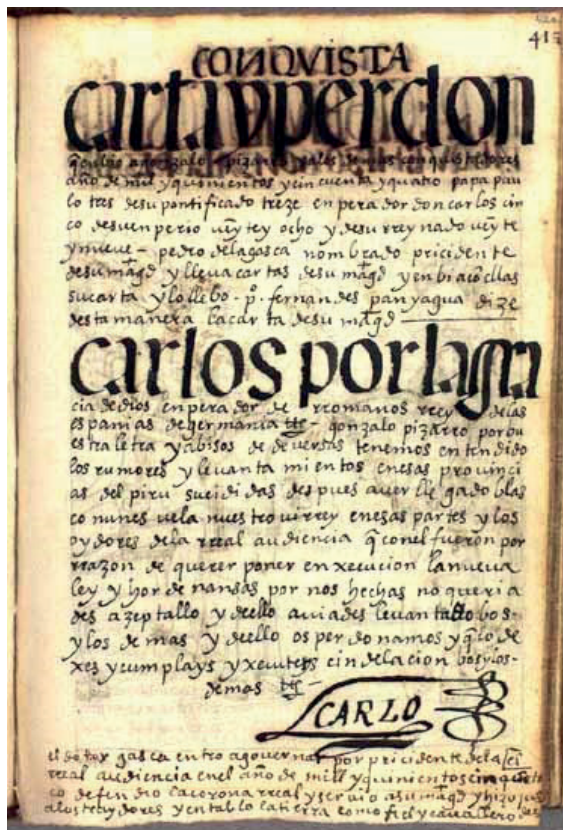 413
CONQVISTA
carta y perdon
q̃ enbio a gonzalo pizarro y a los demas conquistadores
año de mil y quinientos y cincuenta y quatro papa pau
lo tres de su pontificado treze enperador don carlos cin
co desu enperio ueyte y ocho y desu rreynado ueyte
y nueue – pedro de la gasca nombrado pricidente
desu mag.d y lleua cartas desu mag.d y enbia con ellas
su carta y lo llebo – p.o fernandes panyagua dize
desta manera la carta desu mag.d
carlos por la gra
cia de dios enperador de rromanos rrey de las
espanias de germania ttc – gonzalo pizarro por bu
estra letra y abisos de deuersas tenemos entendido
los rumores y leuantamientos en esas prouinci
as del piru suceididas despues auer llegado blas
co nunes uela nuestro uirrey en esas partes y los
oydores de la rreal audiencia q̃ con el fueron por
rrazon de querer poner en xecucion la nueua
ley y hordenansas por nos hechas no queria
des azeptallo y de ello auiades leuantado bos –
y los demas y de ello os perdonamos y q̃ lo de
xes y cumplays y xecuteys cin delacion bos y los –
demas ttc –
CARLO
el dotor gasca entro a gouernar por pricidente de la
rreal audiencia en el año de mill y quinientos cinquenta
co defendio la corona rreal y seruio a su mag.d y hizo
a los treydores y entablo la tierra como fiel y cauallero